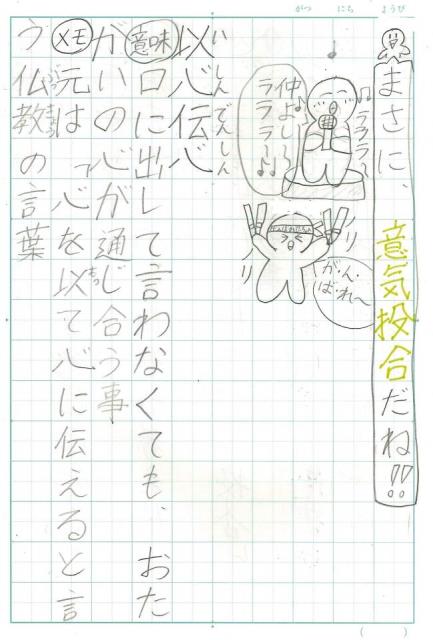 がつ にち ようび
まさに、意気投合だね!!
ラララ〜
仲よし〜ラララ〜
がんばれ〜
いしんでんしん
以心伝心
意味 口に出して言わなくても、おた
がいの心が通じ合う事
メモ 元は「心を以て心に伝えると言
う仏教の言葉